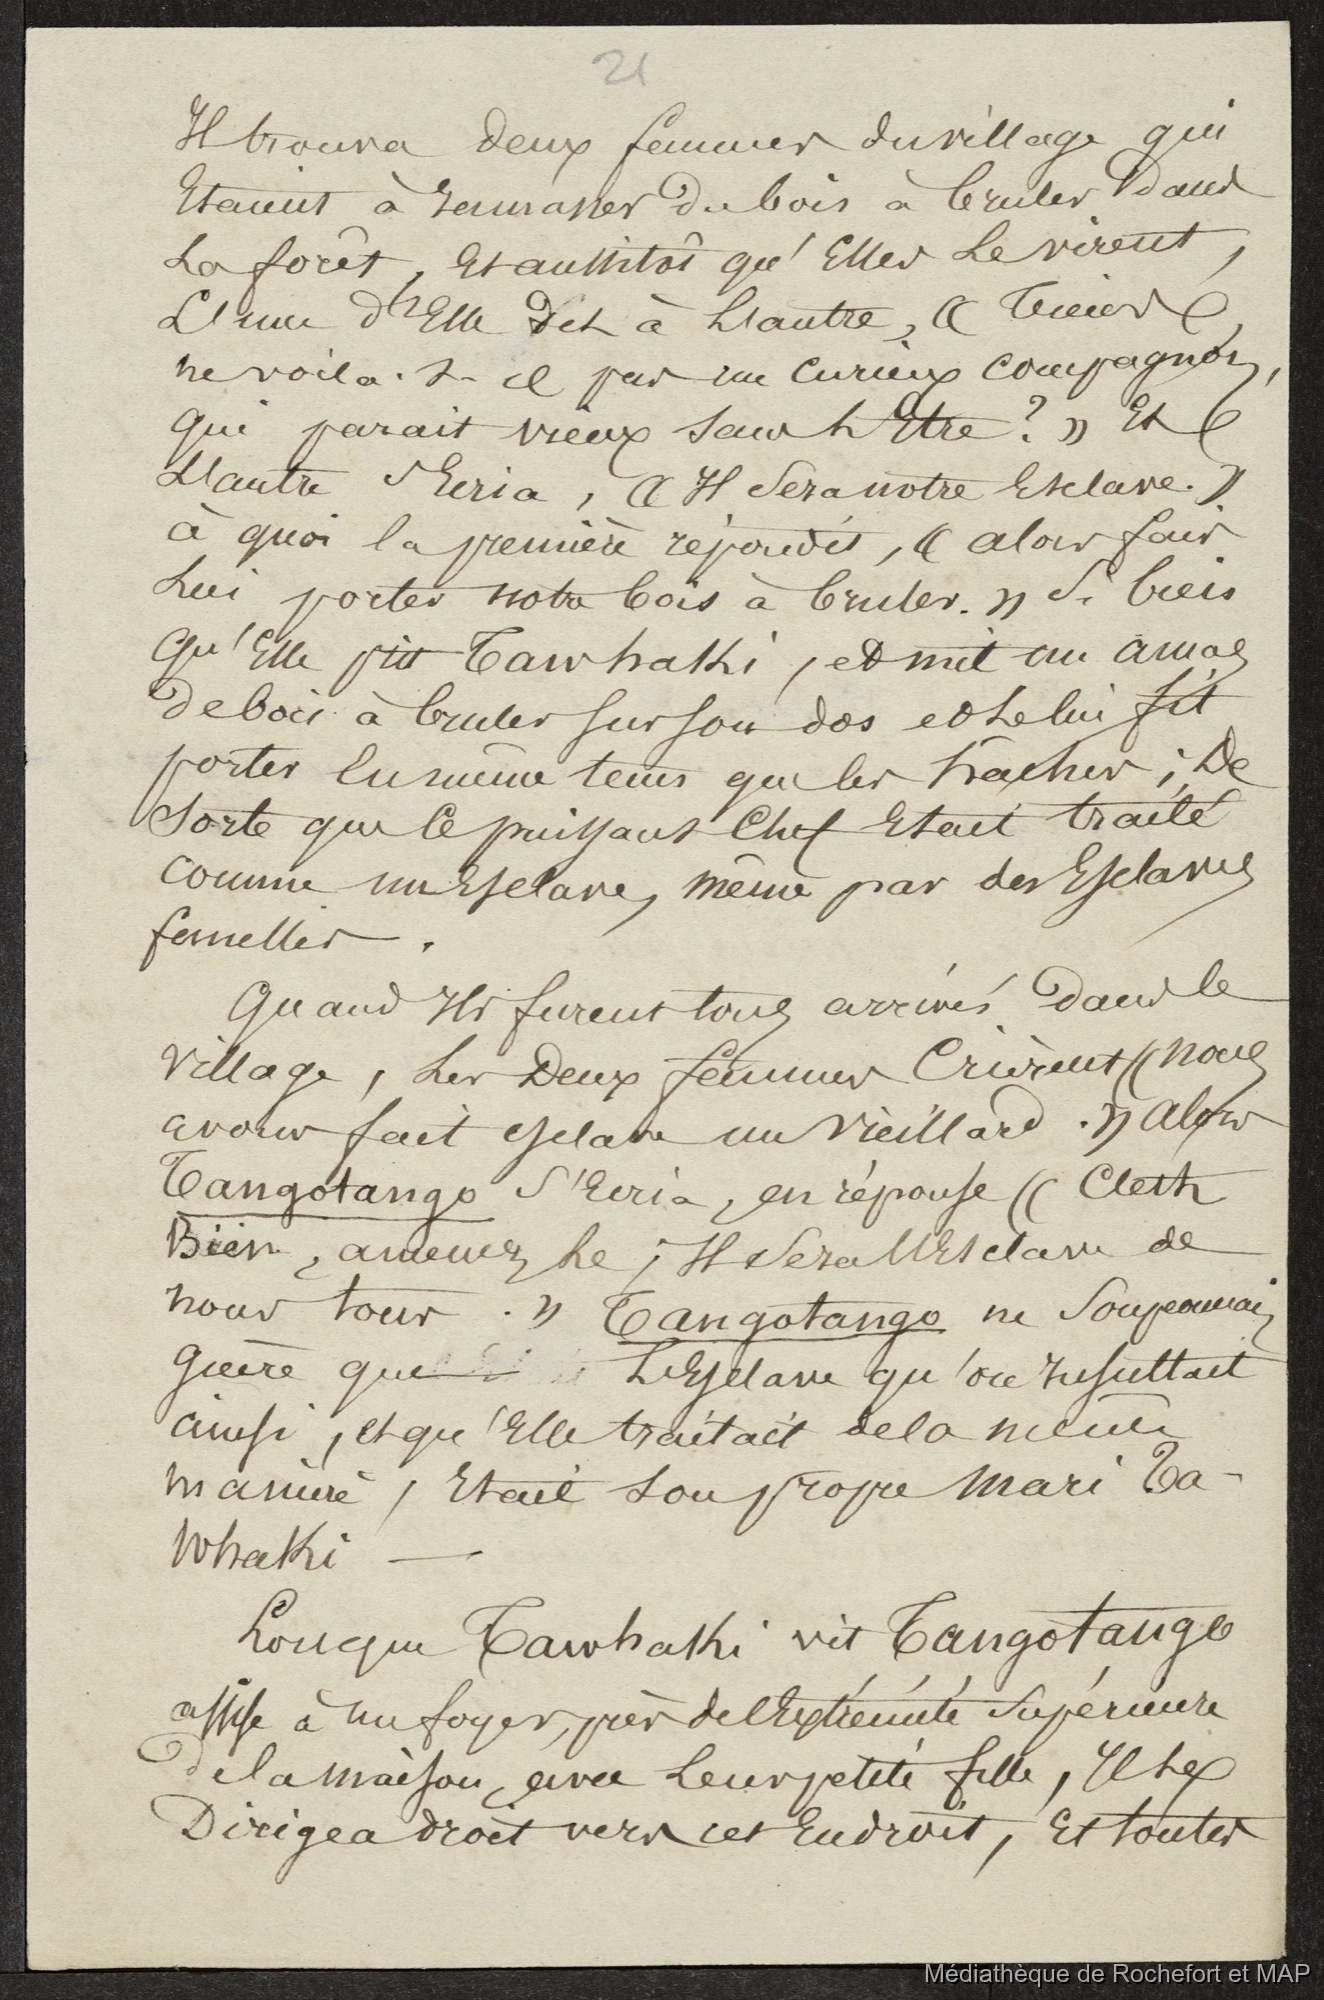 21
Il trouva deux femmes du village qui
Etaient à ramasser du bois à bruler dans
La forêt, Et aussitôt qu'Elles Le virent,
L'une d'Elle dit à L'autre, « Tiens
ne voila-t-il pas un curieux compagnon,
qui parait vieux sans L'Etre ? » Et
L'autre s'Ecria, « Il Sera notre Esclave. »
à quoi la première répondit, « alors fais
Lui porter notre bois à bruler. » Si bien
qu'Elle prit Tawhaki, et mit un amas
de bois à bruler sur son dos et le lui fit
porter En même tems que les haches ; De
Sorte que Ce puissant Chef Etait traité
comme un Esclave, même par des Esclaves
femelles.
Quand Ils furent tous arrivés dans le
village, Les Deux femmes Crièrent « nous
avons fait esclave un vieillard. » alors
Tangotango S'Ecria, en réponse « C'est
Bien, amenez Le ; Il Sera L'Esclave de
nous tous. » Tangotango ne Soupconnait
guère que L'Esclave qu'on insultait
ainsi, et qu'Elle traitait de la même
manière, Etait Son propre Mari Ta-
whaki —
Lorsque Tawhaki vit Tangotango
assise à un foyer, près de l'Extrémité Supérieure
de la maison, avec Leur petite fille, Il se
Dirigea droit vers cet Endroit, Et toutes
Médiathèque de Rochefort et MAP